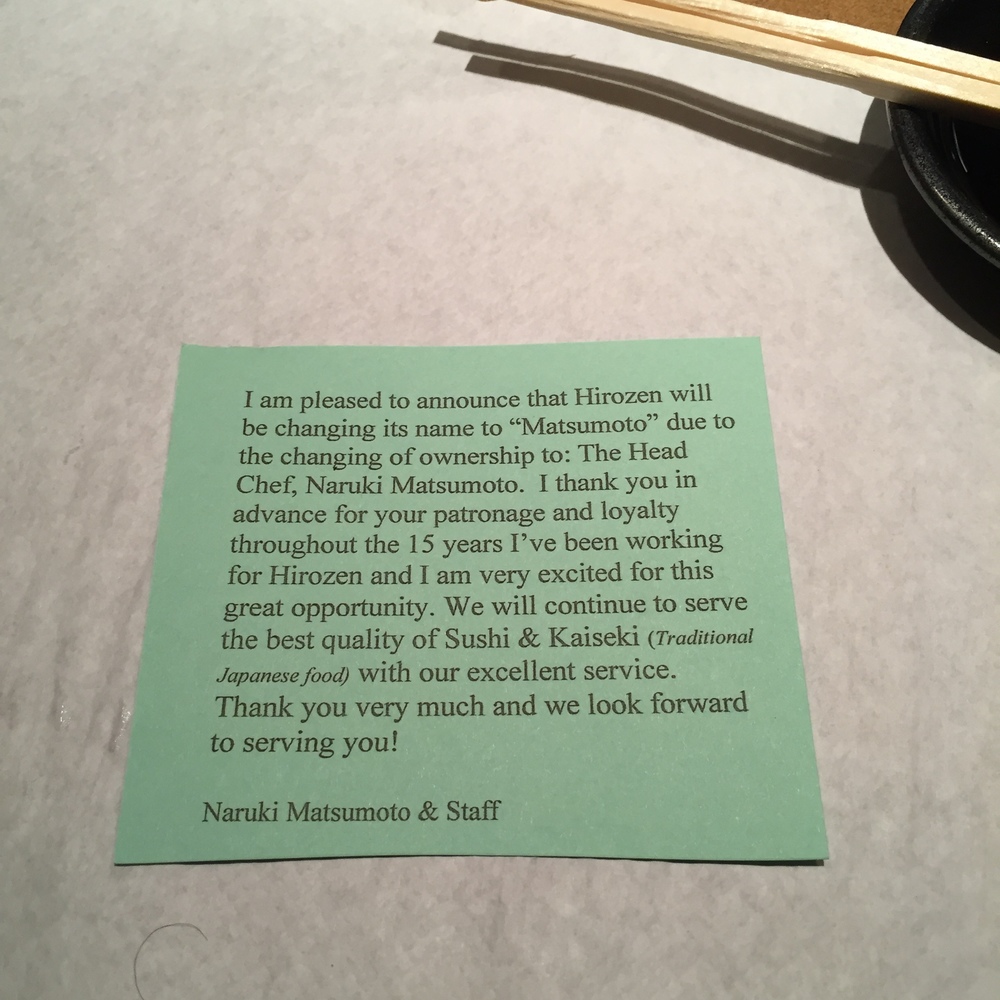 I am pleased to announce that Hirozen will
be changing its name to “Matsumoto” due to
the changing of ownership to: The Head
Chef, Naruki Matsumoto.  I thank you in
advance for your patronage and loyalty
throughout the 15 years I’ve been working
for Hirozen and I am very excited for this
great opportunity. We will continue to serve
the best quality of Sushi & Kaiseki (Traditional
Japanese food) with our excellent service.
Thank you very much and we look forward
to serving you!
Naruki Matsumoto & Staff